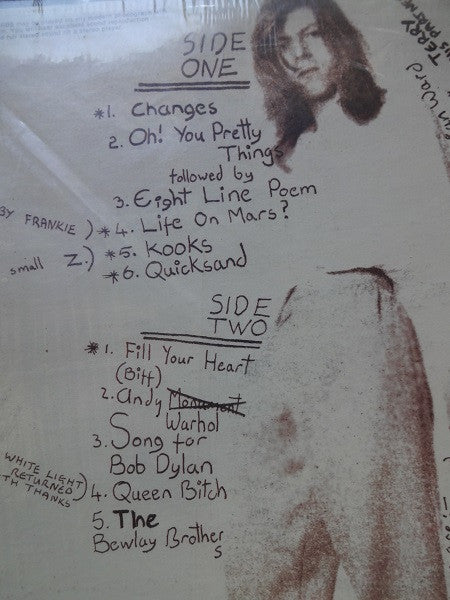 SIDE
ONE
*1. Changes
2. Oh! You Pretty
Things
followed by
3. Eight Line Poem
BY FRANKIE ) *4. Life On Mars?
*5. Kooks
small Z.) *6. Quicksand
SIDE
TWO
*1. Fill Your Heart
(Biff)
2. Andy
Warhol
3. Song for
Bob Dylan
WHITE LIGHT
RETURNED
TH THANKS ) 4. Queen Bitch
5. The
Bewlay Brother
s
TERRY
Ward